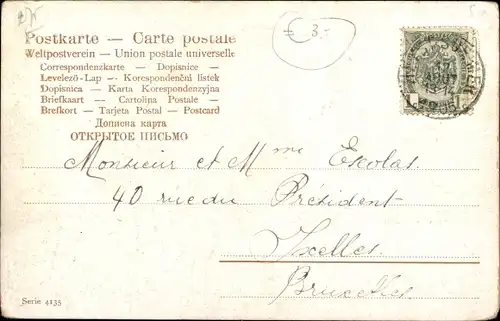 = 3.-
Postkarte — Carte postale
Weltpostverein — Union postale universelle
Correspondenzkarte — Dopisnice —
Levelező-Lap — Korespondenční listek
Dopisnica — Karta Korespondenzyjna
Briefkaart — Cartolina Postale —
Brefkort — Tarjeta Postal — Postcard
Дописна карта
ОТКРЫТОЕ ПИСЬМО
Monsieur et Mme Escolas
40 rue du Président
Ixelles
Bruxelles.
Serie 4135